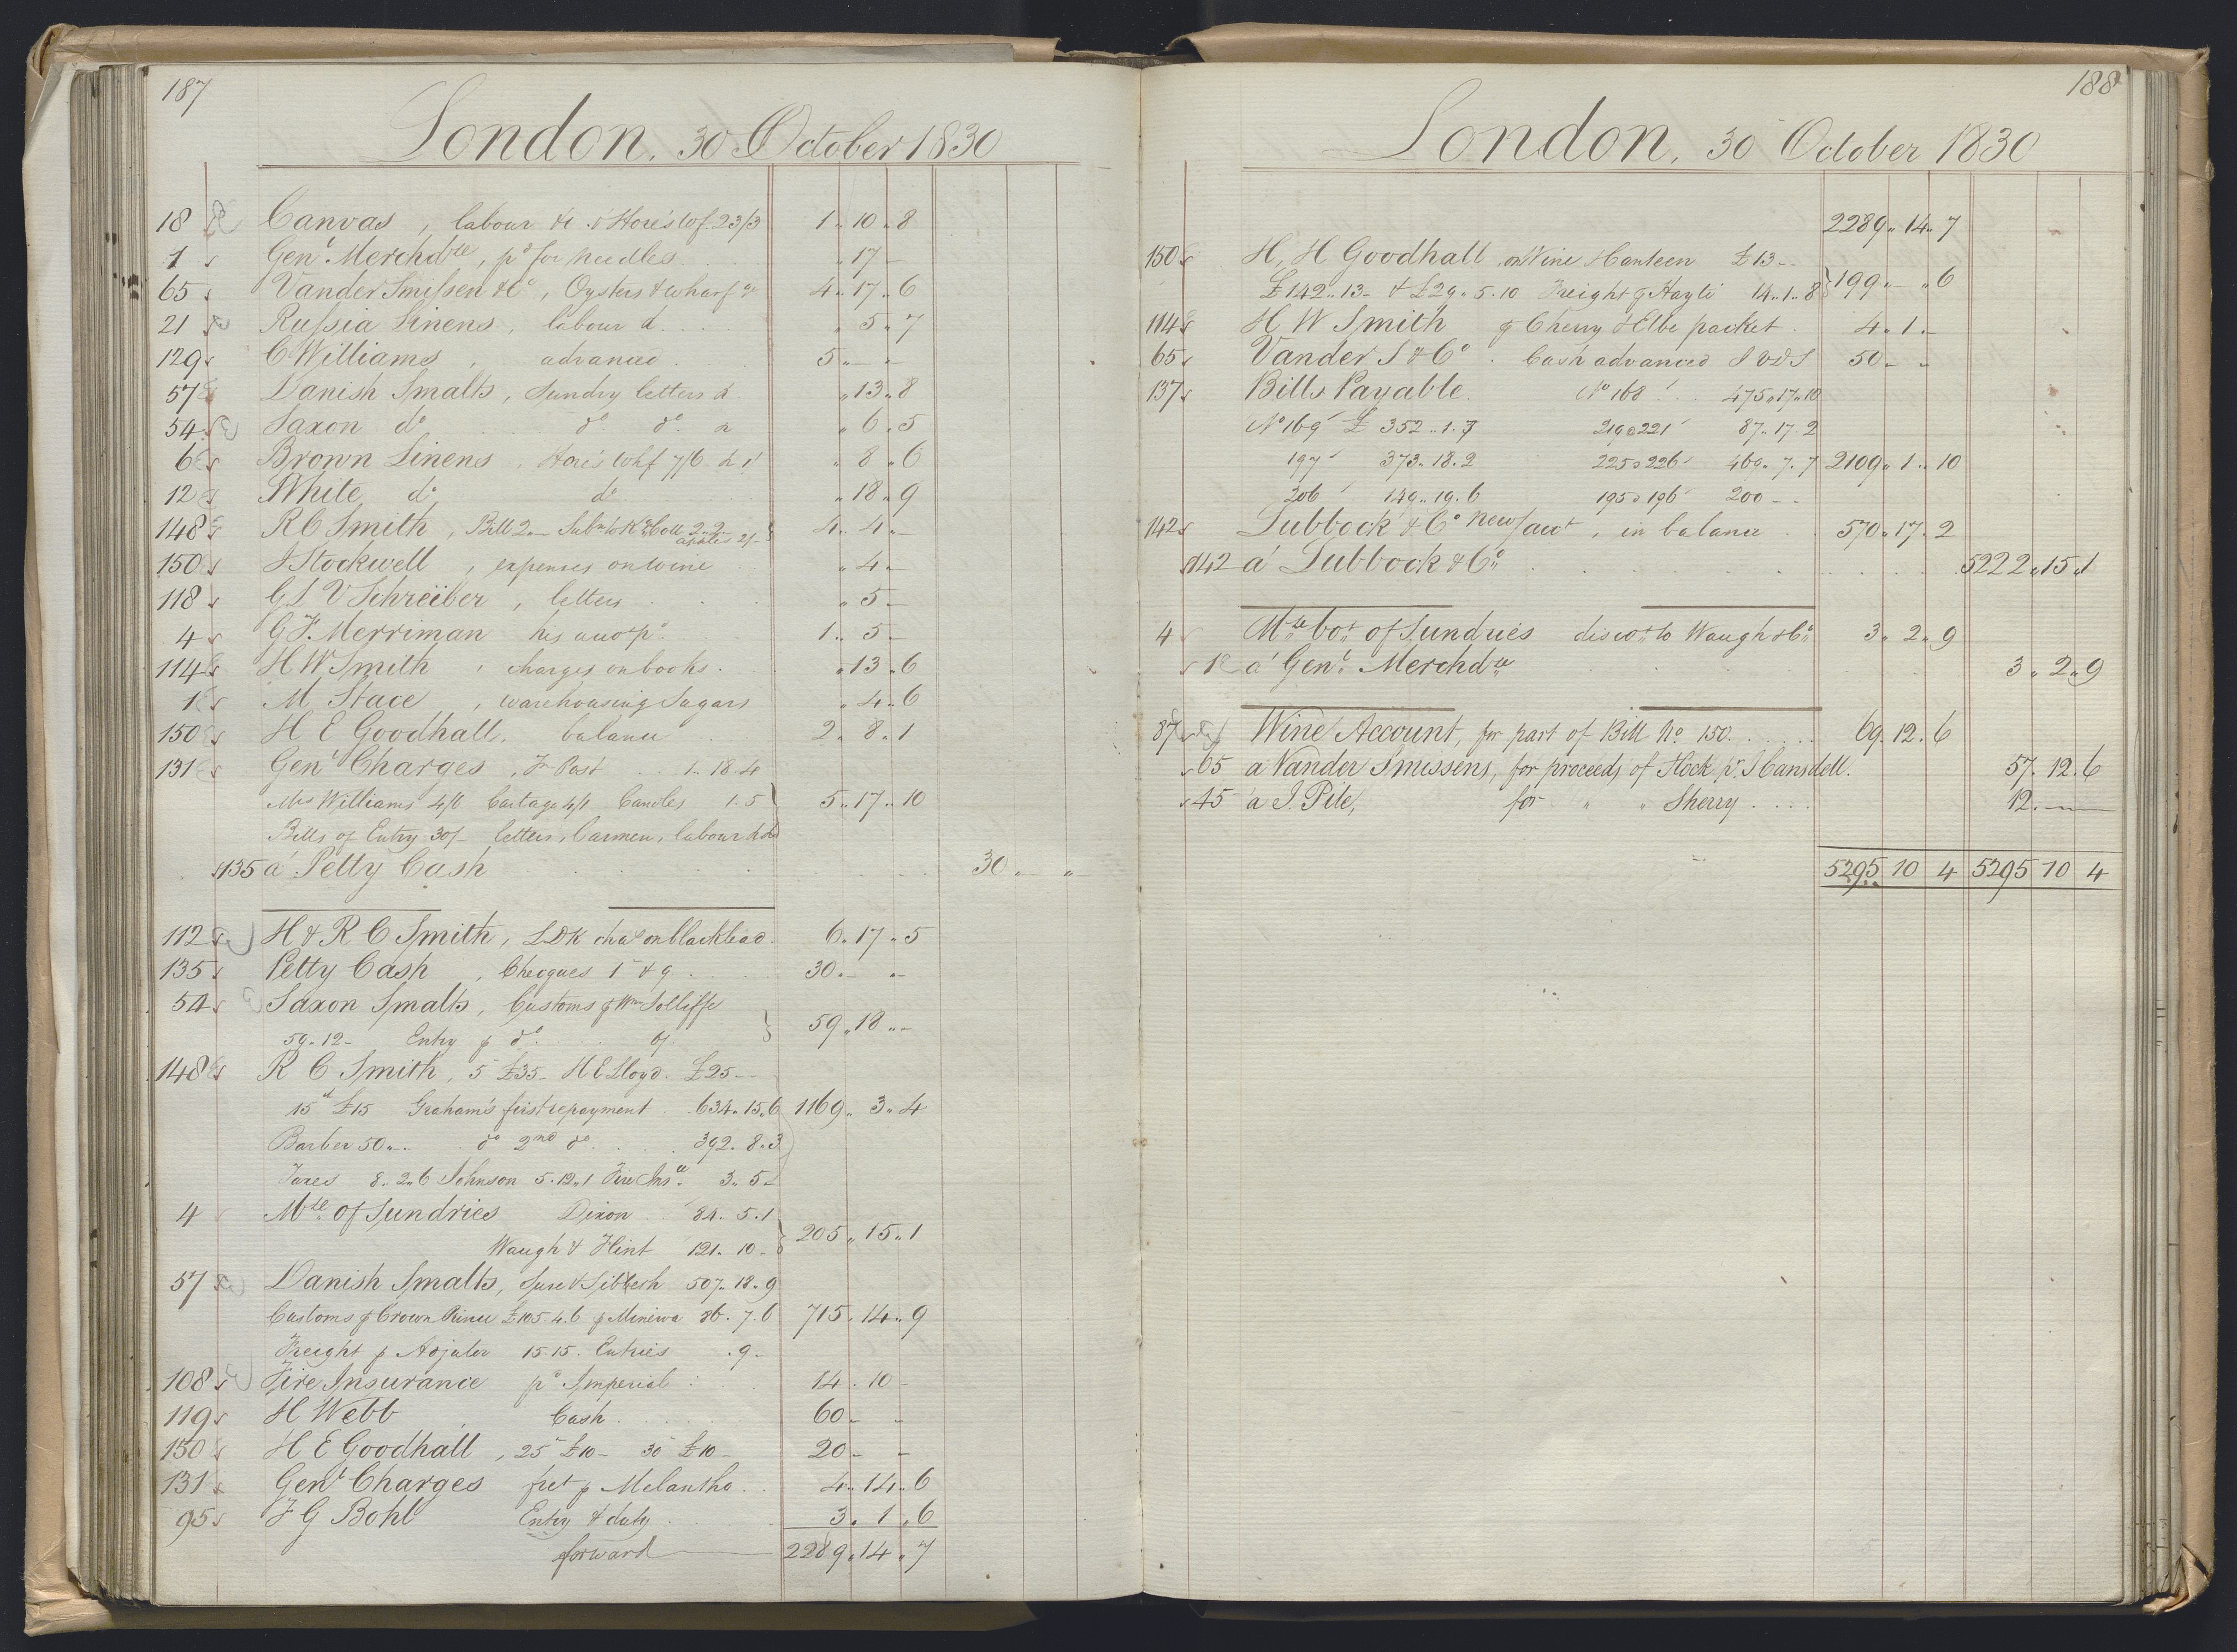 187
London, 30 October 1830
18 Canvas, labour &c Hore's Whf 23/3 1 " 10 " 8
1 Genl Merchdze, pd for Needles " 17 -
65 Vander Smissen & Co, Oysters & wharfge 4 " 17 " 6
21 Russia Linens, labour &. " 5 " 7
129 C Williams, advanced 5 " - "
57 Danish Smalts, Sundry letters & " 13 " 8
54 Saxon do do do & " 6 " 5
6 Brown Linens, Hore's Whf 7/6 & 1/ " 8 " 6
12 White do do " 18 " 9
148 R C Smith, Bill 2 "- Subn to K's Coll 2 " 2 - apples 2/- 4 " 4 " -
150 J Stockwell, expenses on wine " 4 " -
118 G L V Schreiber, letters " 5 -
4 G F. Merriman his acct pd 1 " 5 -
114 H W Smith, charges on books " 13 " 6
1 M Stace, warehousing Sugars " 4 " 6
150 H E Goodhall, balance 2 " 8 " 1
131 Genl Charges, Fn Post 1 " 18 " 4
Mrs Williams 4/6 Cartage 4/1 Candles 1 " 5 5 " 17 " 10
Bills of Entry 30/- letters, Carmen, labour &c
135 a Petty Cash 30 " - "
112 H & R C Smith, LDK chas on blacklead 6 " 17 " 5
135 Petty Cash, Cheques 1 & 9 30 " - " -
54 Saxon Smalts, Customs p Wm Jolliffe
59 " 12 - Entry p do 6/ 59 " 18 " -
148 R C Smith, 5 £35 - H E Lloyd £25 -
15th £15 Graham's first repayment 634 " 15 " 6 1169 " 3 " 4
Barber 50 " - do 2nd do 392 " 8 " 3
Taxes 8 " 2 " 6 Johnson 5 " 12 " 1 Fire Insce 3 " 5 -
4 Mdze of Sundries Dixon 84 " 5 " 1
Waugh & Flint 121 " 10 - 205 " 15 " 1
57 Danish Smalts, 507 " 18 " 9
Customs p Crown Prince £105 " 4 " 6 p Minerva 86 " 7 " 6 715 " 14 " 9
Freight p Adjutor 15 " 15 . Entries " 9 -
108 Fire Insurance pd Imperial 14 " 10 -
119 H Webb Cash 60 - -
150 H E Goodhall, 25 £10 - 30 £10 - 20 - -
131 Genl Charges frt p Melantho 4 " 14 " 6
95 J G Bohl Entry & duty 3 " 1 " 6
forward 2289 " 14 " 7
188
London, 30 October 1830
2289 " 14 " 7
150 H, H Goodhall on Wine £13 -
£142 " 13 - & £29 " 5 " 10 Freight p Hayti 14 " 1 " 8 199 " - " 6
114 H W Smith p Cherry & Elbe packet 4 " 1 -
65 Vander S & Co Cash advanced J V D S 50 - -
137 Bills Payable No 168 475 " 17 " 10
No 169 £ 352 " 1 " 7 219 a 221 87 " 17 " 2
197 373 " 18 " 2 225 a 226 469 " 7 " 7 2109 " 1 " 10
206 149 " 19 " 6 195 a 196 200 - -
142 Lubbock & Co New / acct, in balance 570 " 17 " 2
142 a Lubbock & Co 5222 " 15 " 1
4 Mdze bot of Sundries discot to Waugh & Co 3 " 2 " 9
1 a Genl Merchdze 3 " 2 " 9
87 Wine Account, for part of Bill No 150 69 . 12 . 6
65 a Vander Smissens, for proceeds of Hock pr J Cansdell. 57 . 12 . 6
45 a J. Pile, for " " Sherry 12 . - -
5295 10 4 5295 10 4